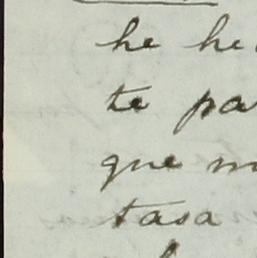 he he
te pa
que m
tasa